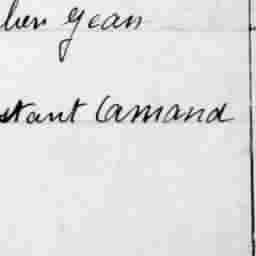 lien Jean
stant Camand